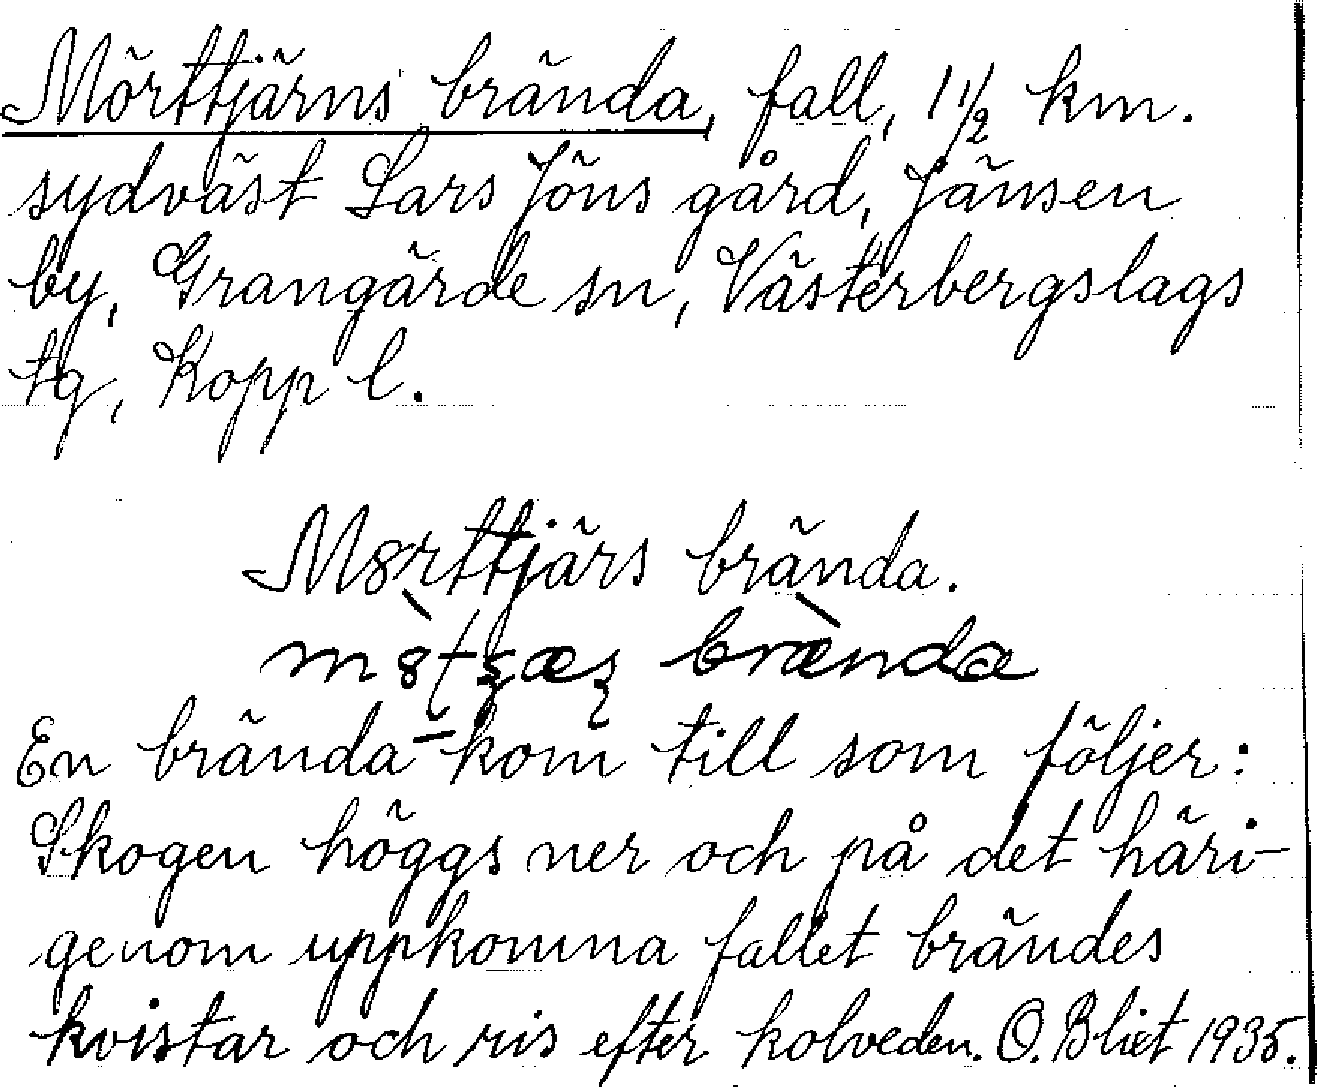 Mörttjärns brända, fall, 1 1/2 km.
sydväst Lars Jöns gård, Jänsen
by, Grangärde sn, Västerbergslags
tg, Kopp l.
M8rttjärs brända.
brænda
En brända kom till som följer:
Skogen höggs ner och på det häri-
genom uppkomna fallet brändes
kvistar och ris efter kolveden. O. Bliet 1935.